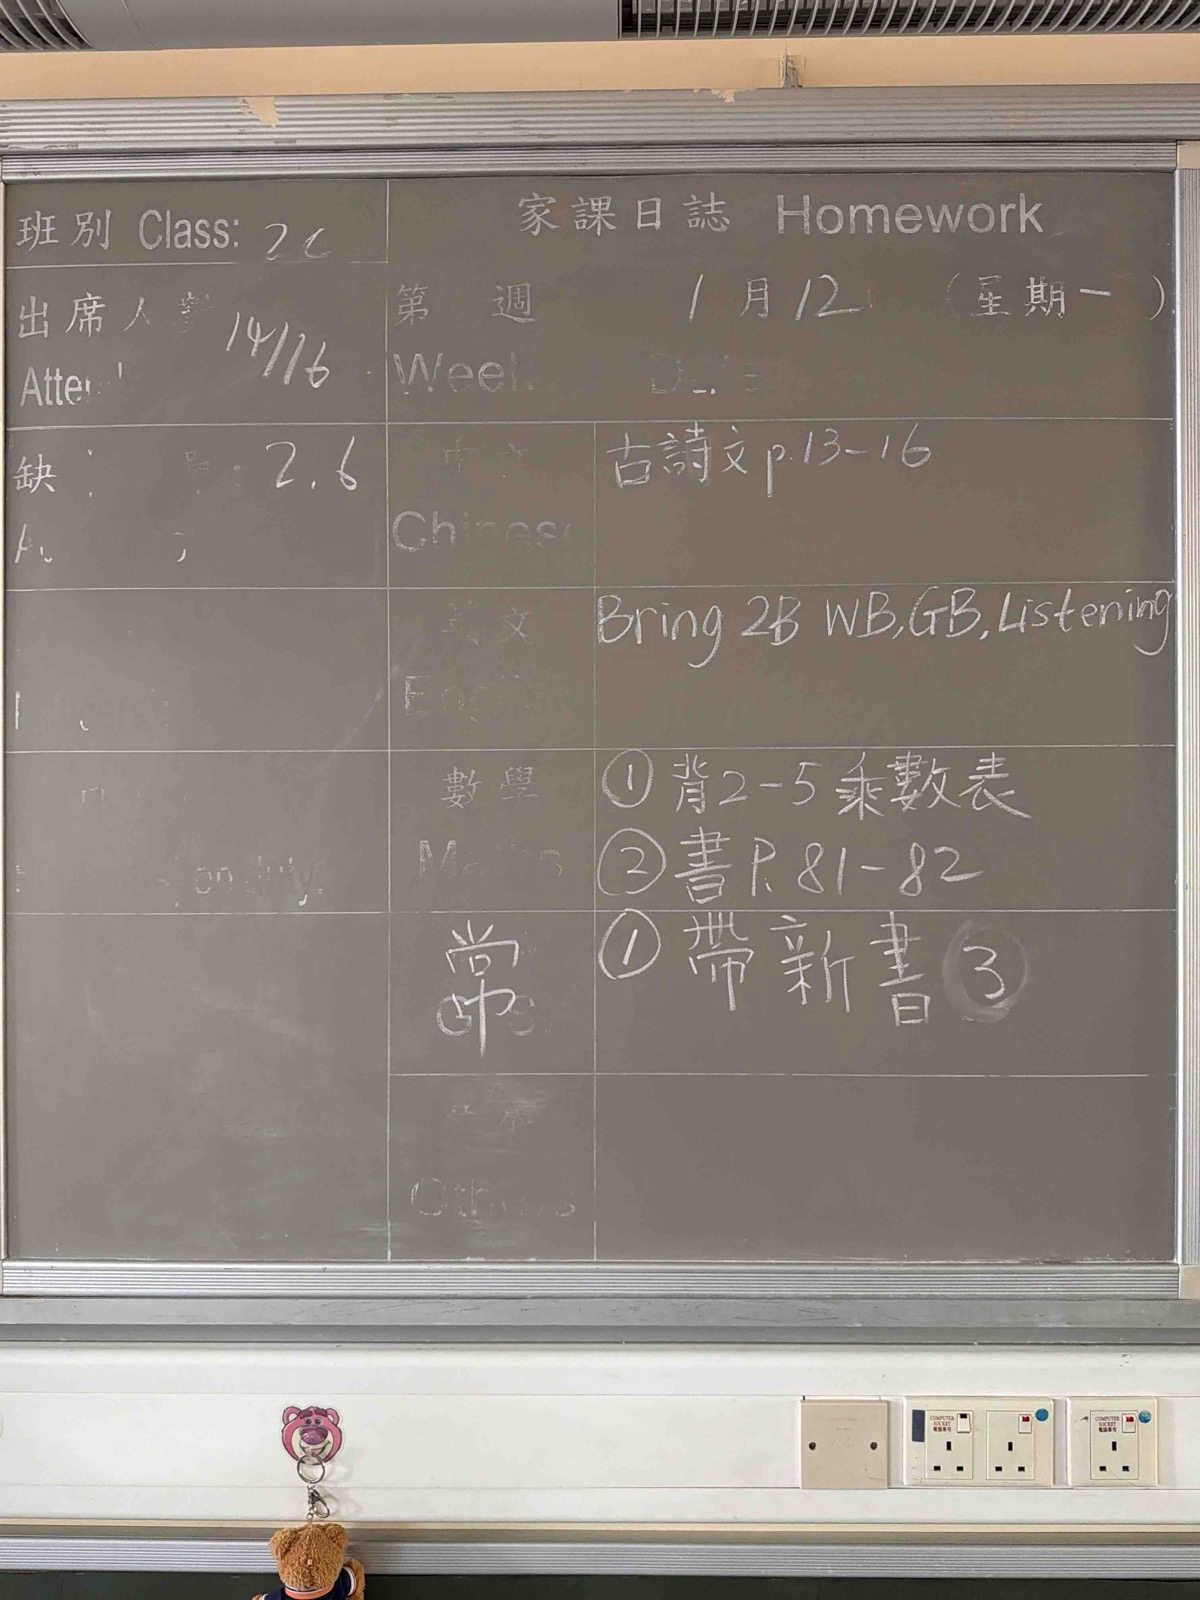 班別 Class: 2C
家課日誌 Homework
出席人數 14/16
第 週 1月12 (星期一)
Week
缺 2.6
中文 古詩文 p.13-16
Chinese
英文 Bring 2B WB, GB, Listening
English
數學 ① 背2-5乘數表
Maths ② 書P.81-82
on duty
常 ① 帶新書 ③
Others
COMPUTER SOCKET 電腦專用
COMPUTER SOCKET 電腦專用